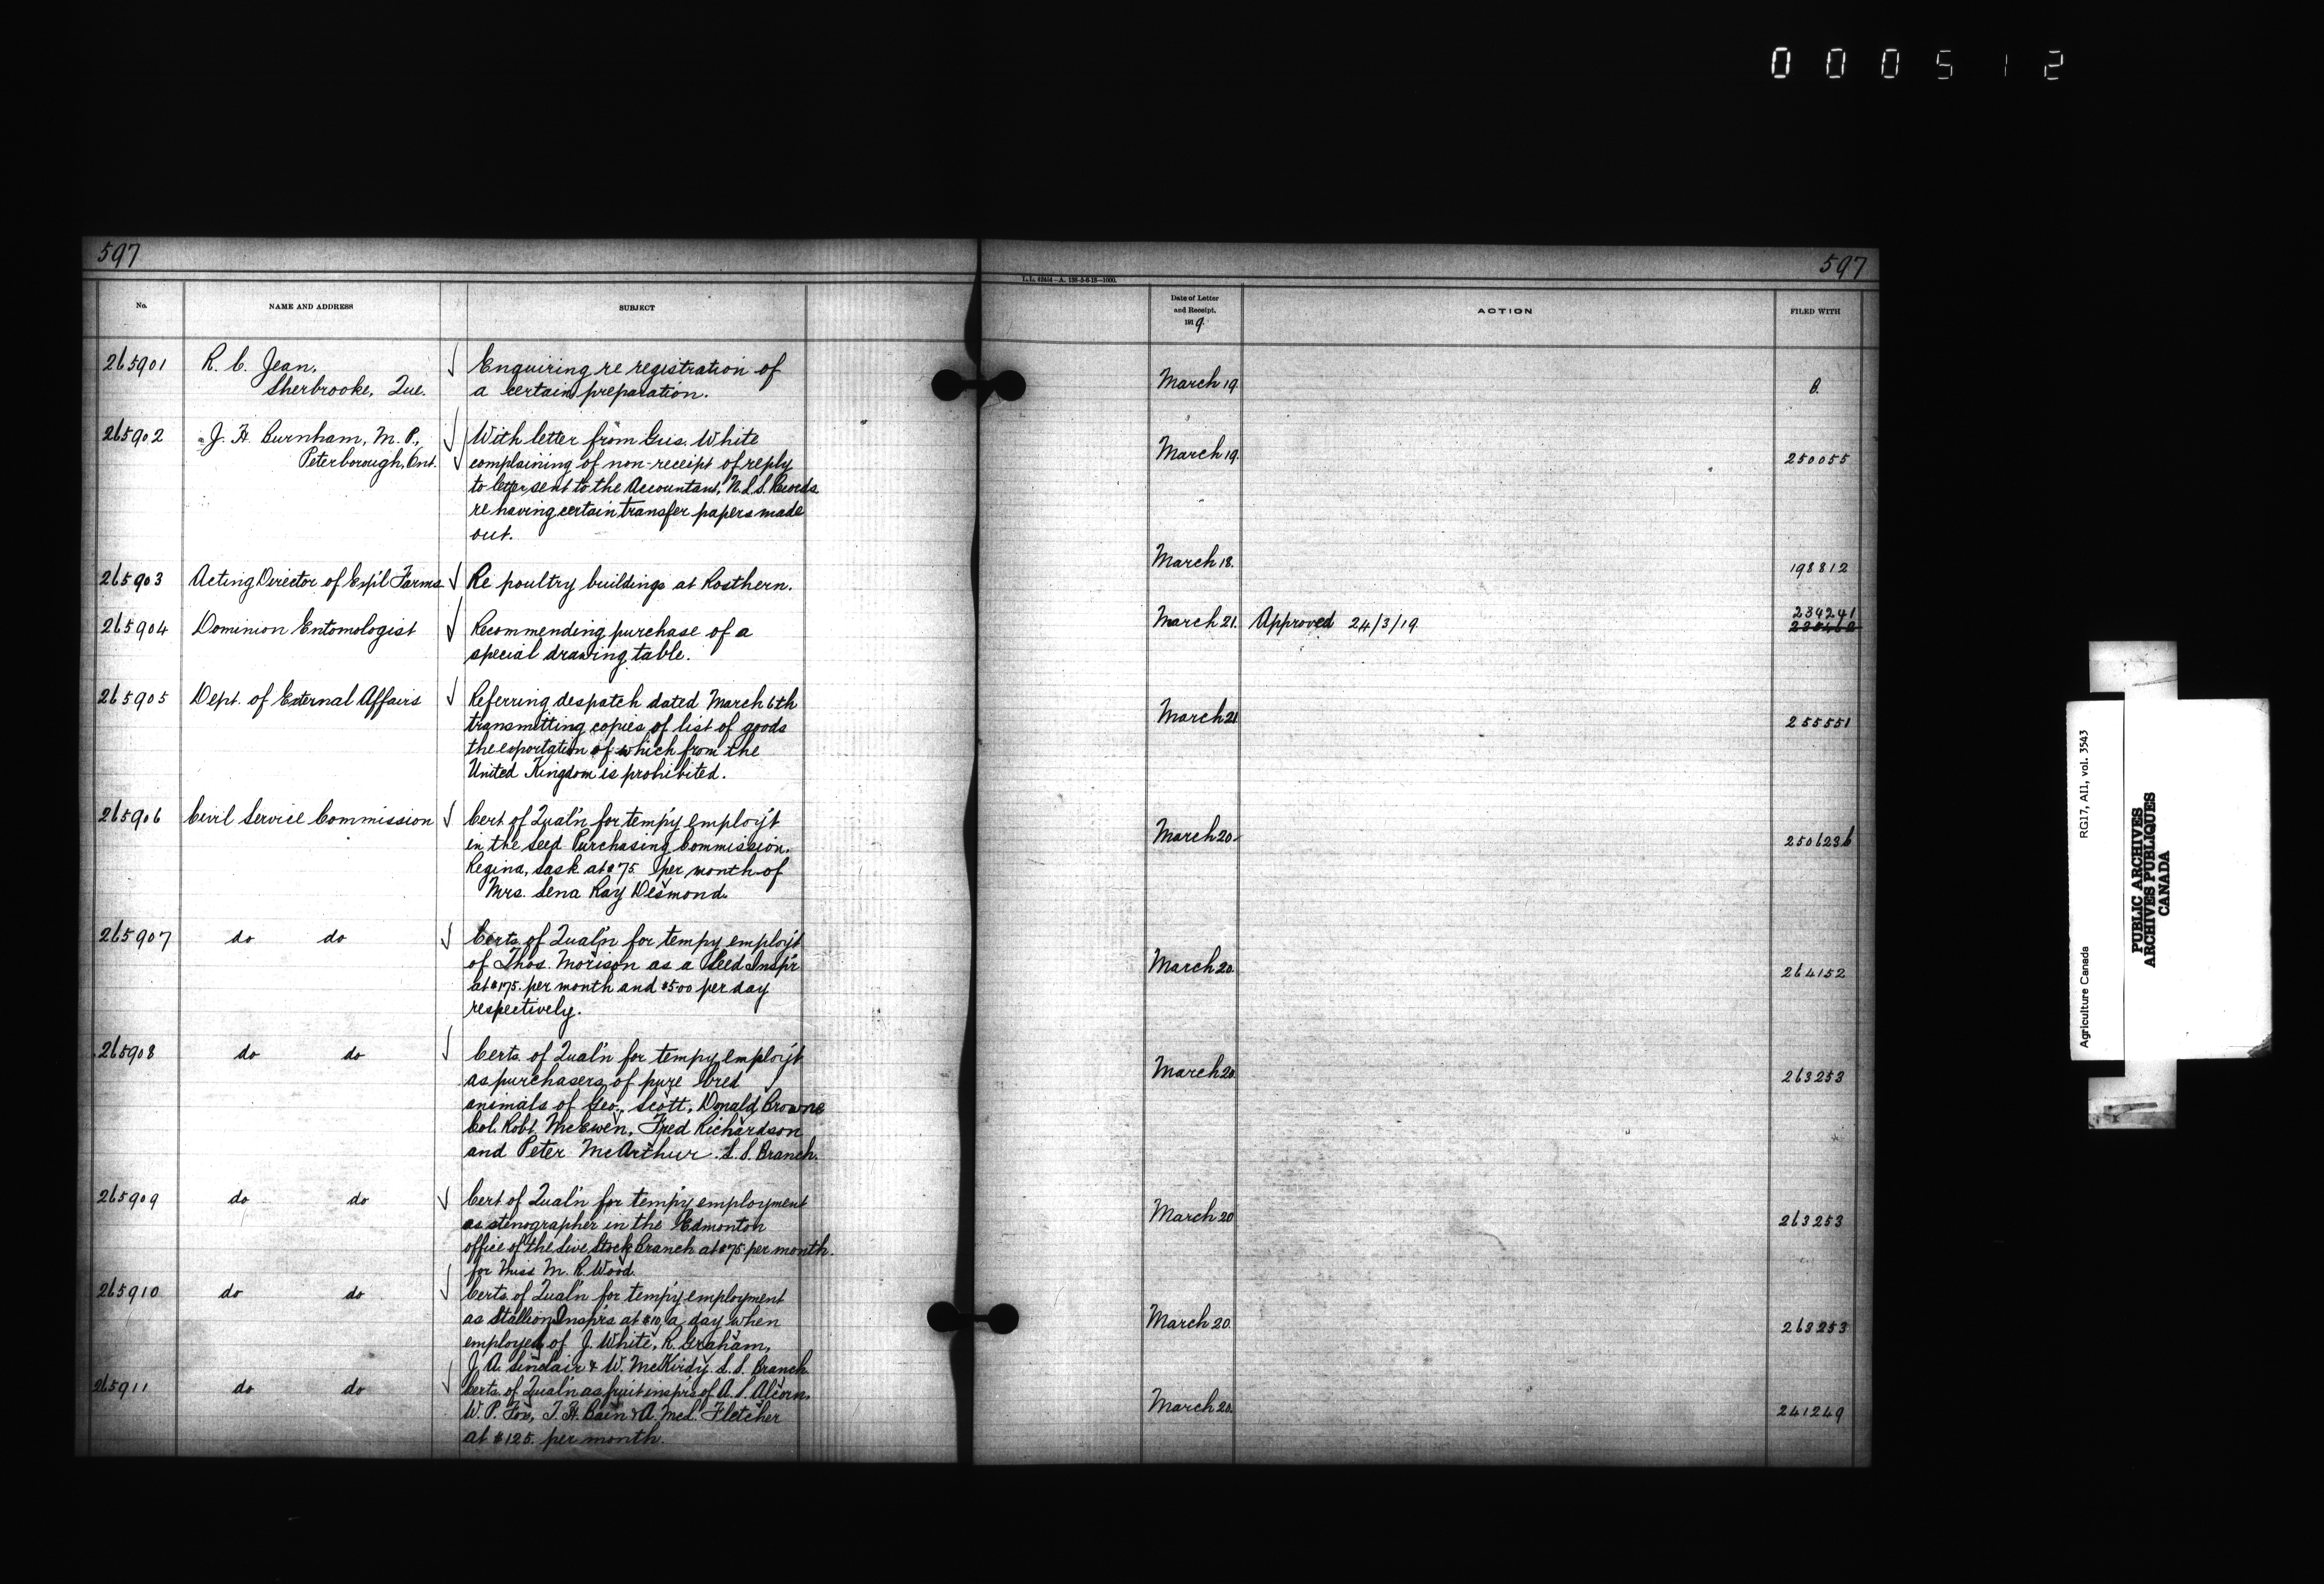 000512
597
597
L.L. 42414-A. 128-5-6-18-1000.
No.
NAME AND ADDRESS
SUBJECT
Date of Letter and Receipt, 1919.
ACTION
FILED WITH
265901 R. C. Jean, √ Enquiring re registration of
Sherbrooke, Que. a certain preparation. March 19. B.
265902 J. H. Burnham, M. P., √ With letter from Gus. White
Peterborough, Ont. √ complaining of non-receipt of reply March 19. 250055
to letter sent to the Accountant, N.L.S. Records
re having certain transfer papers made
out.
265903 Acting Director of Exp'l Farms √ Re poultry buildings at Rosthern. March 18. 198812
265904 Dominion Entomologist √ Recommending purchase of a March 21. Approved 24/3/19. 234241
special drawing table.
265905 Dept. of External Affairs √ Referring despatch dated March 6th
transmitting copies of list of goods March 21 255551
the exportation of which from the
United Kingdom is prohibited.
265906 Civil Service Commission √ Cert of Qual'n for temp'y employ't
in the Seed Purchasing Commission, March 20. 250623b
Regina, Sask at $75 per month of
Mrs. Lena Ray Desmond.
265907 do do √ Certs. of Qual'n for tempy employ't
of Thos. Morison as a Seed Insp'r March 20. 264152
at $175. per month and $5.00 per day
respectively.
265908 do do √ Certs. of Qual'n for tempy employ't
as purchasers of pure bred March 20. 263253
animals of Geo. Scott, Donald Browne
Col. Robt. McEwen, Fred Richardson
and Peter McArthur. L. S. Branch.
265909 do do √ Cert of Qual'n for temp'y employment
as stenographer in the Edmonton March 20 263253
office of the Live Stock Branch at $75. per month.
for Miss M. R. Wood.
265910 do do √ Certs. of Qual'n for temp'y employment
as Stallion Insp'rs at $10, a day when March 20. 263253
employed of J. White, R. Graham,
J. A. Sinclair & W. McKirdy L. S. Branch
265911 do do √ Certs. of Qual'n as fruit insp'rs of A. S. Alcorn,
W. P. Fox, T. H. Bain & A. McL. Fletcher March 20. 241249
at $125. per month.
Agriculture Canada RG17, AI1, vol. 3543
PUBLIC ARCHIVES
ARCHIVES PUBLIQUES
CANADA